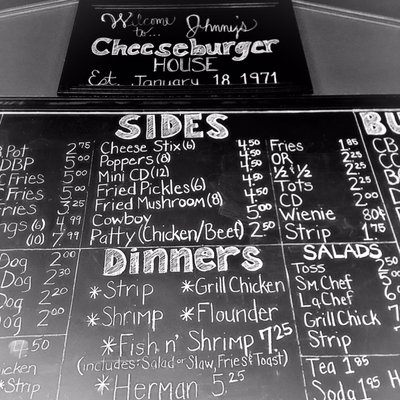 Welcome to... Johnny's
Cheeseburger
HOUSE
Est. January 18, 1971
Pot 2.75
DBP 5.00
C Fries 5.00
C Fries 5.00
Fries 3.25
ngs (6) 4.99
(10) 7.99
Dog 2.00
Dog 2.30
Dog 2.20
Dog 2.00
4.50
icken
*Strip
SIDES
Cheese Stix (6) 4.50
Poppers (8) 4.50
Mini CD (12) 4.50
Fried Pickles (6) 4.50
Fried Mushroom (8) 4.50
Cowboy 5.00
Patty (Chicken/Beef) 2.50
Fries 1.85
OR 2.25
½ & ½ 2.25
Tots 2.25
CD 2.00
Wienie 80¢
Strip 1.75
Dinners
*Strip *Grill Chicken
*Shrimp *Flounder
*Fish n' Shrimp 7.25
(includes: Salad or Slaw, Fries & Toast)
*Herman 5.25
SALADS
Toss
Sm Chef
La Chef
Grill Chick
Strip
Tea 1.85
Soda 1.85
BU
CB